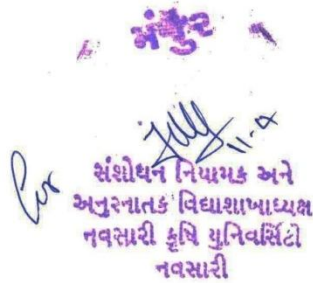 મંજુર
11-9
સંશોધન નિયામક અને
અનુસ્નાતક વિદ્યાશાખાધ્યક્ષ
નવસારી કૃષિ યુનિવર્સિટી
નવસારી